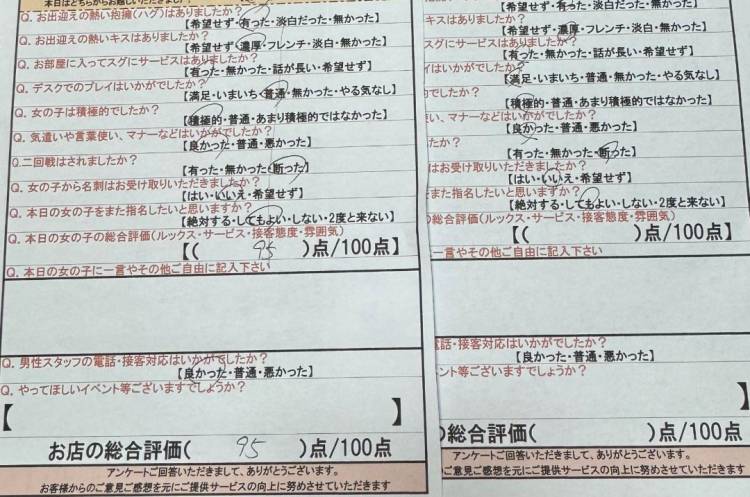 本日はどちらからお越しいただきました
Q. お出迎えの熱い抱擁(ハグ)はありましたか?
【希望せず・有った・淡白だった・無かった】
Q. お出迎えの熱いキスはありましたか?
【希望せず・濃厚・フレンチ・淡白・無かった】
Q. お部屋に入ってスグにサービスはありましたか?
【有った・無かった・話が長い・希望せず】
Q. デスクでのプレイはいかがでしたか?
【満足・いまいち・普通・無かった・やる気なし】
Q. 女の子は積極的でしたか?
【積極的・普通・あまり積極的ではなかった】
Q. 気遣いや言葉使い、マナーなどはいかがでしたか?
【良かった・普通・悪かった】
Q.二回戦はされましたか?
【有った・無かった・断った】
Q. 女の子から名刺はお受け取りいただきましたか?
【はい・いいえ・希望せず】
Q. 本日の女の子をまた指名したいと思いますか?
【絶対する・してもよい・しない・2度と来ない】
Q. 本日の女の子の総合評価(ルックス・サービス・接客態度・雰囲気)
【( 95 )点/100点】
Q. 本日の女の子に一言やその他ご自由に記入下さい
Q. 男性スタッフの電話・接客対応はいかがでしたか?
【良かった・普通・悪かった】
Q. やってほしいイベント等ございますでしょうか?
【 】
お店の総合評価( 95 )点/100点
アンケートご回答いただきまして、ありがとうございます。
お客様からのご意見ご感想を元にご提供サービスの向上に努めさせていただきます
【希望せず・有った・淡白だった・無かった】
キスはありましたか?
【希望せず・濃厚・フレンチ・淡白・無かった】
スグにサービスはありましたか?
【有った・無かった・話が長い・希望せず】
イはいかがでしたか?
【満足・いまいち・普通・無かった・やる気なし】
的でしたか?
【積極的・普通・あまり積極的ではなかった】
い、マナーなどはいかがでしたか?
【良かった・普通・悪かった】
たか?
【有った・無かった・断った】
はお受け取りいただきましたか?
【はい・いいえ・希望せず】
をまた指名したいと思いますか?
【絶対する・してもよい・しない・2度と来ない】
の総合評価(ルックス・サービス・接客態度・雰囲気)
【( )点/100点】
に一言やその他ご自由に記入下さい
電話・接客対応はいかがでしたか?
【良かった・普通・悪かった】
ント等ございますでしょうか?
】
総合評価( )点/100点
アンケートご回答いただきまして、ありがとうございます。
ご意見ご感想を元にご提供サービスの向上に努めさせていただきます